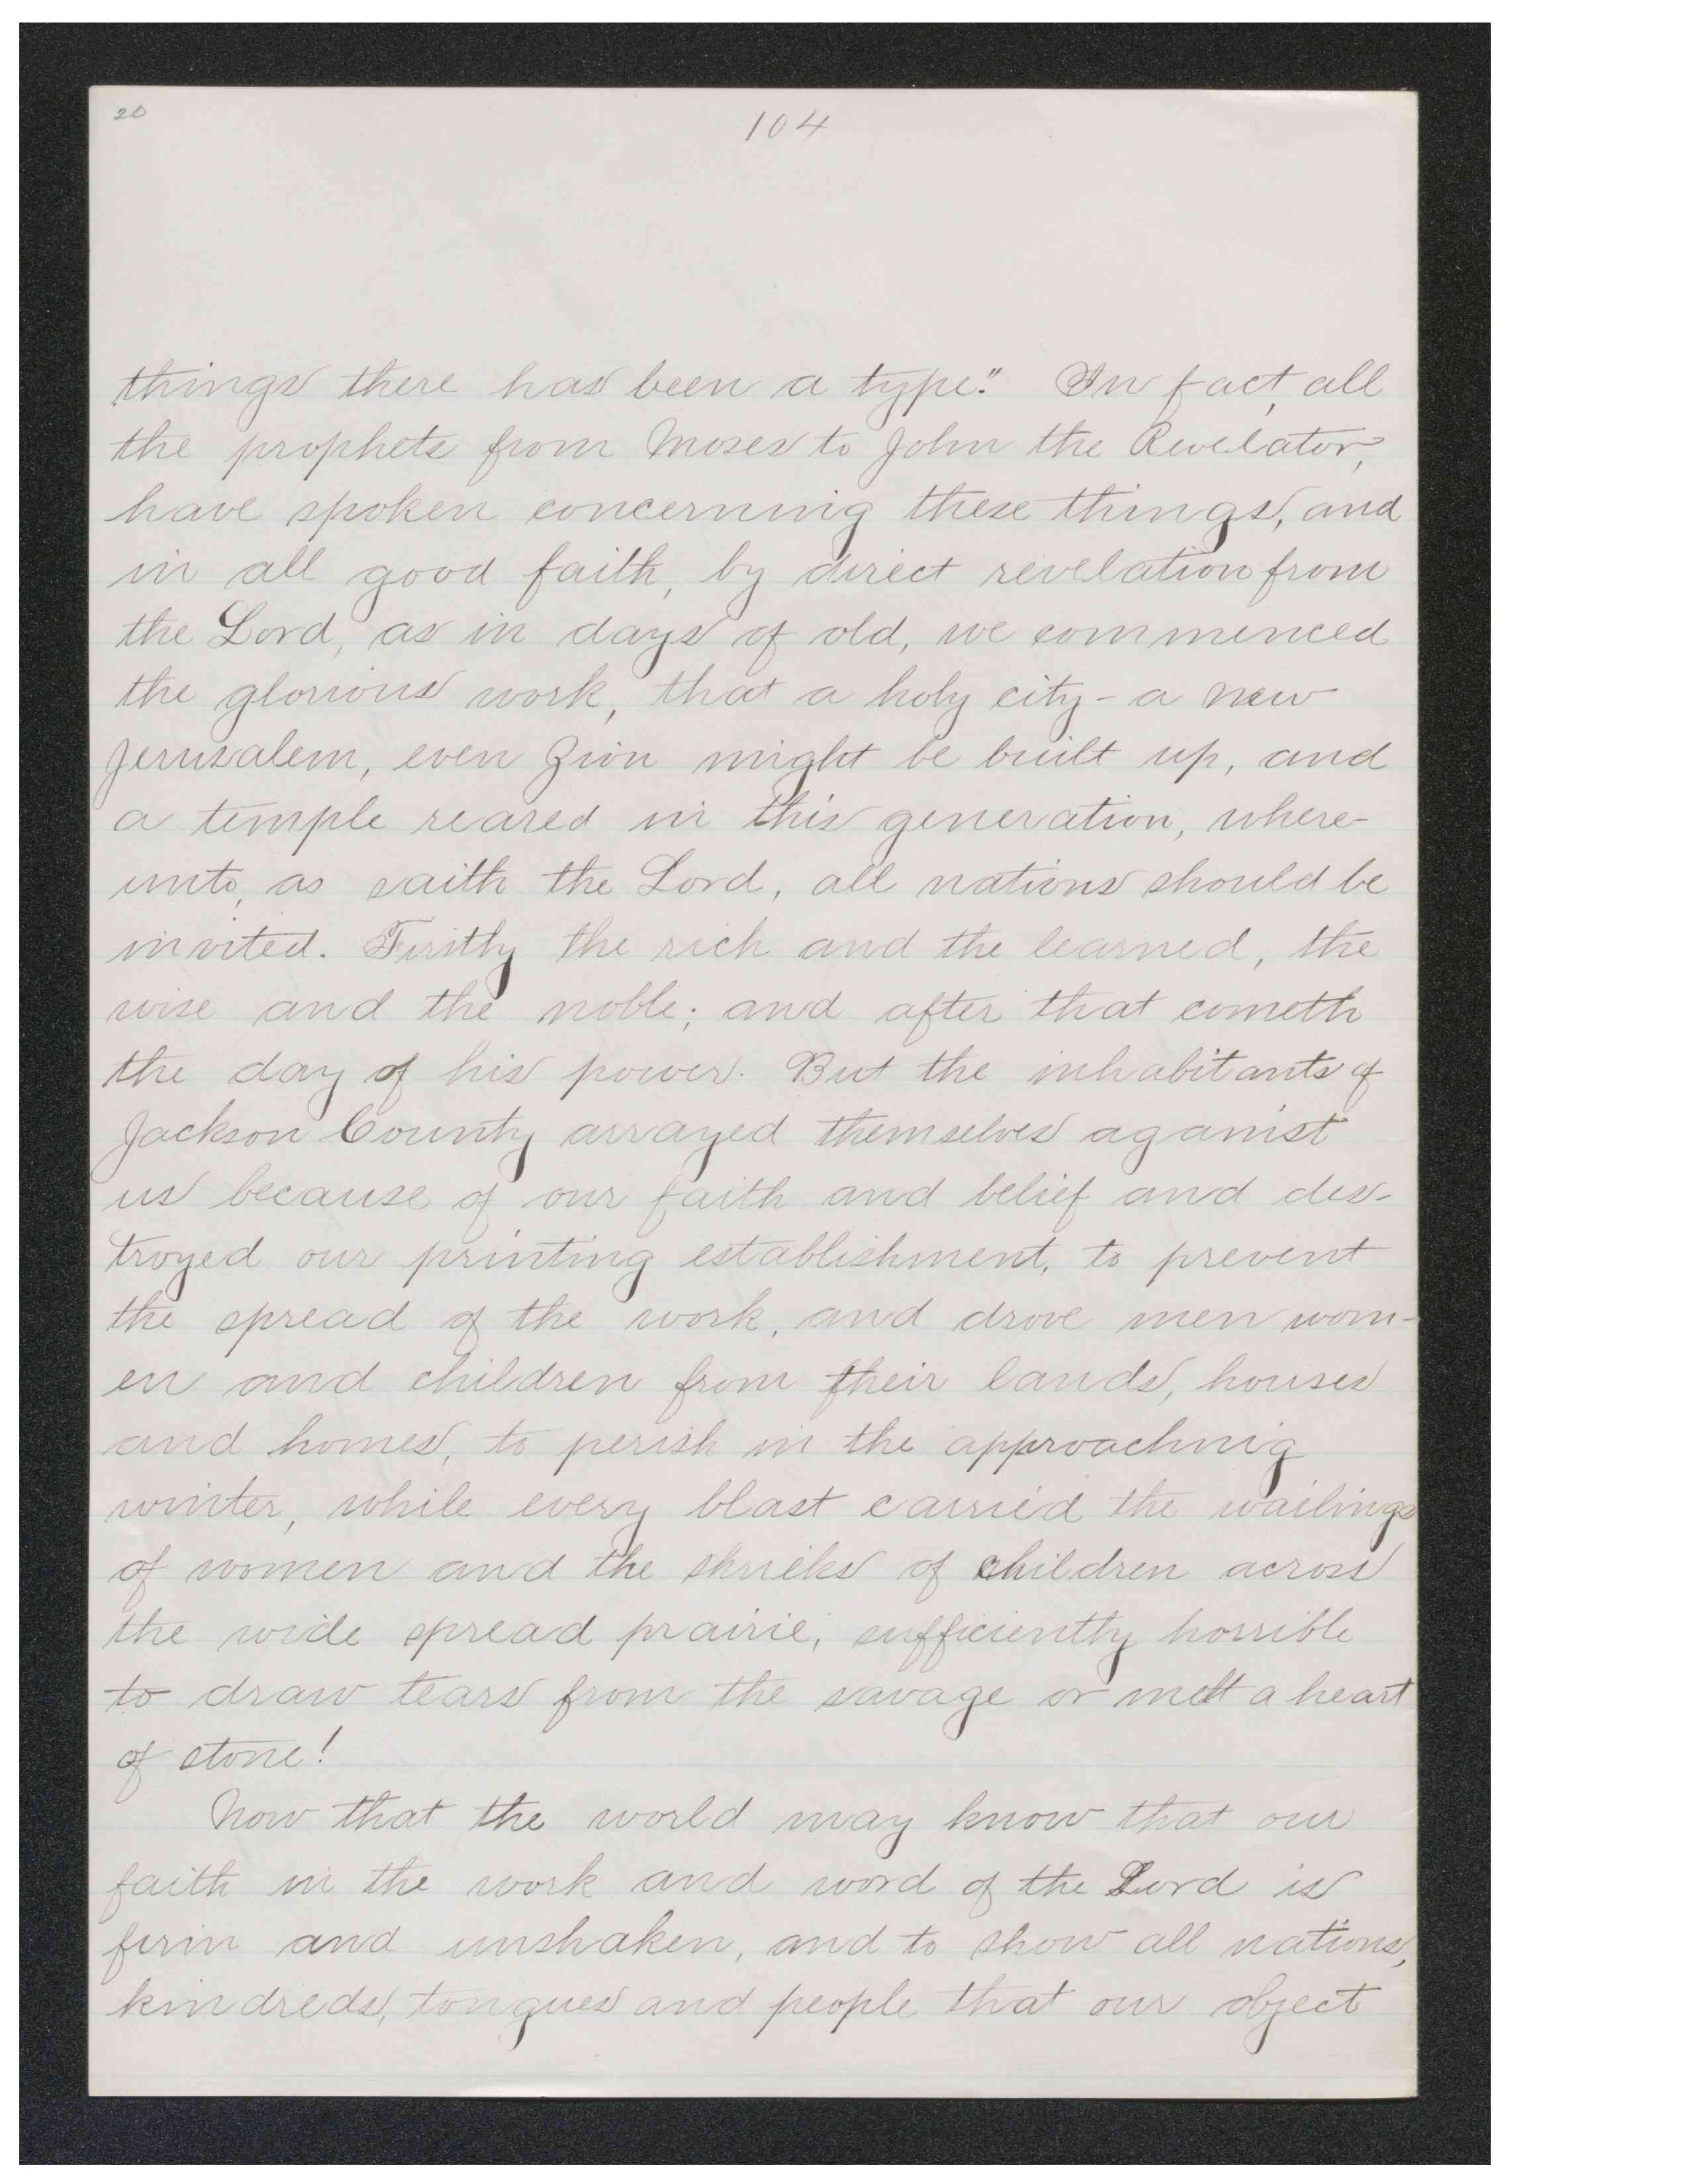 20
104
things there has been a type." In fact, all
the prophets from Moses to John the Revelator,
have spoken concerning these things, and
in all good faith, by direct revelation from
the Lord, as in days of old, we commenced
the glorious work, that a holy city - a new
Jerusalem, even Zion might be built up, and
a temple reared in this generation, where-
unto, as saith the Lord, all nations should be
invited. Firstly the rich and the learned, the
wise and the noble; and after that cometh
the day of his power. But the inhabitants of
Jackson County arrayed themselves against
us because of our faith and belief and des-
troyed our printing establishment, to prevent
the spread of the work, and drove men wom-
en and children from their lands, houses
and homes, to perish in the approaching
winter, while every blast carried the wailings
of women and the shrieks of children across
the wide spread prairie, sufficiently horrible
to draw tears from the savage or melt a heart
of stone!
Now that the world may know that our
faith in the work and word of the Lord is
firm and unshaken, and to show all nations,
kindreds, tongues and people that our object